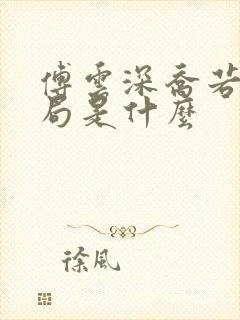 傅雲深喬若
局是什麼
徐風